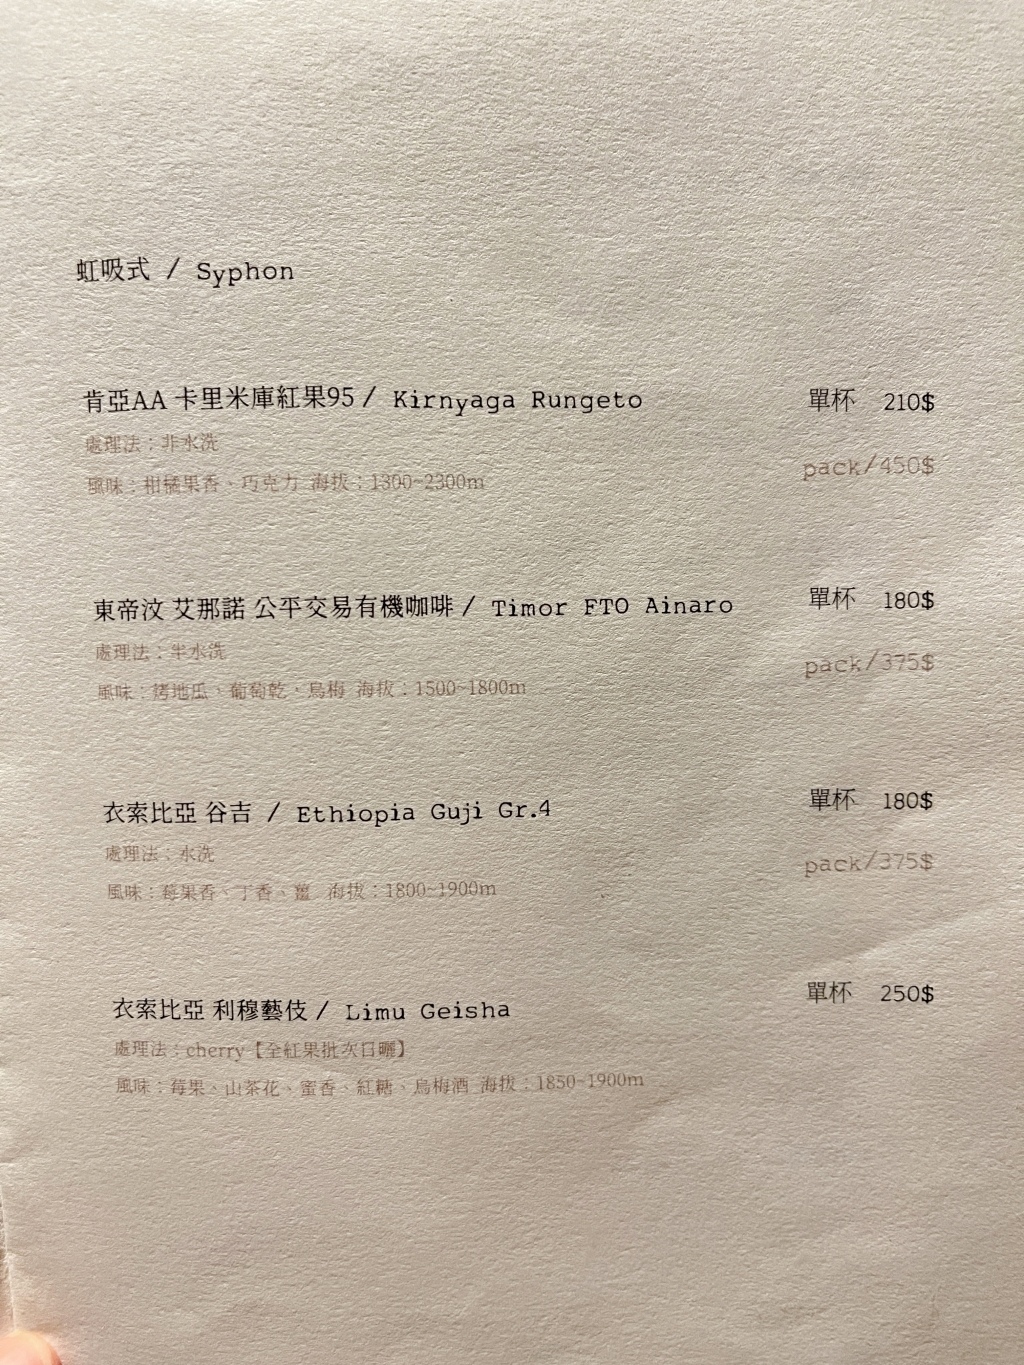 虹吸式 / Syphon
肯亞AA 卡里米庫紅果95 / Kirnyaga Rungeto 單杯 210$
處理法：非水洗
pack/450$
風味：柑橘果香、巧克力 海拔：1300~2300m
東帝汶 艾那諾 公平交易有機咖啡 / Timor FTO Ainaro 單杯 180$
處理法：半水洗
pack/375$
風味：烤地瓜、葡萄乾、烏梅 海拔：1500~1800m
衣索比亞 谷吉 / Ethiopia Guji Gr.4 單杯 180$
處理法：水洗
pack/375$
風味：莓果香、丁香、薑 海拔：1800~1900m
衣索比亞 利穆藝伎 / Limu Geisha 單杯 250$
處理法：cherry【全紅果批次日曬】
風味：莓果、山茶花、蜜香、紅糖、烏梅酒 海拔：1850~1900m